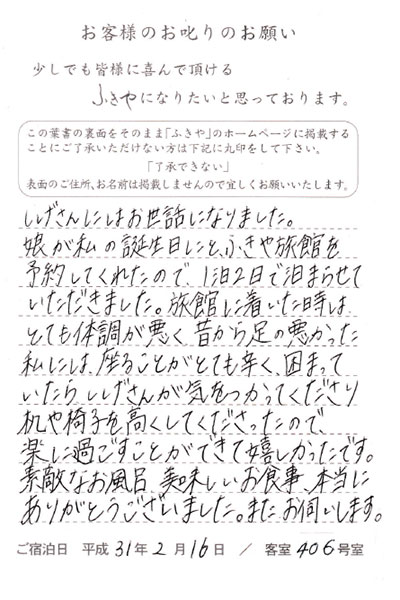 お客様のお叱りのお願い
少しでも皆様に喜んで頂ける
ふきやになりたいと思っております。
この葉書の裏面をそのまま「ふきや」のホームページに掲載する
ことにご了承いただけない方は下記に丸印をして下さい。
「了承できない」
表面のご住所、お名前は掲載しませんので宜しくお願いいたします。
しげさんにはお世話になりました。
娘が私の誕生日にと、ふきや旅館を
予約してくれたので、1泊2日で泊まらせて
いただきました。旅館に着いた時は
とても体調が悪く 昔から足の悪かった
私には、座ることがとても辛く、困まって
いたら しげさんが気をつかってくださり
机や椅子を高くしてくださったので
楽に過ごすことができて嬉しかったです。
素敵なお風呂 美味しいお食事、本当に
ありがとうございました。またお伺いします。
ご宿泊日 平成 31年 2月 16日 / 客室 406号室